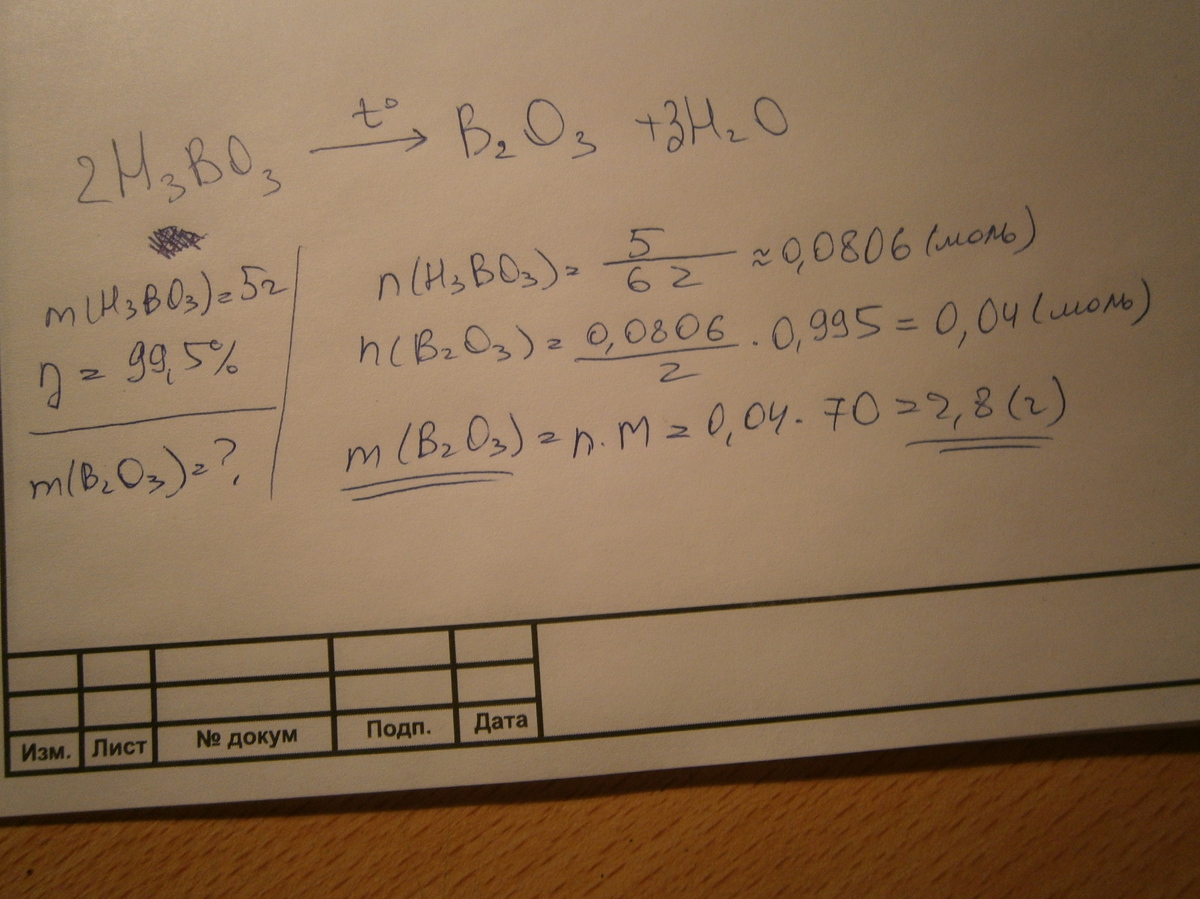 2H₃BO₃ →(t°) B₂O₃ + 3H₂O
m(H₃BO₃) = 5г
η = 99,5%
m(B₂O₃) = ?
n(H₃BO₃) = 5/62 ≈ 0,0806 (моль)
n(B₂O₃) = 0,0806/2 · 0,995 = 0,04 (моль)
m(B₂O₃) = n · M = 0,04 · 70 = 2,8 (г)
Изм. Лист № докум Подп. Дата